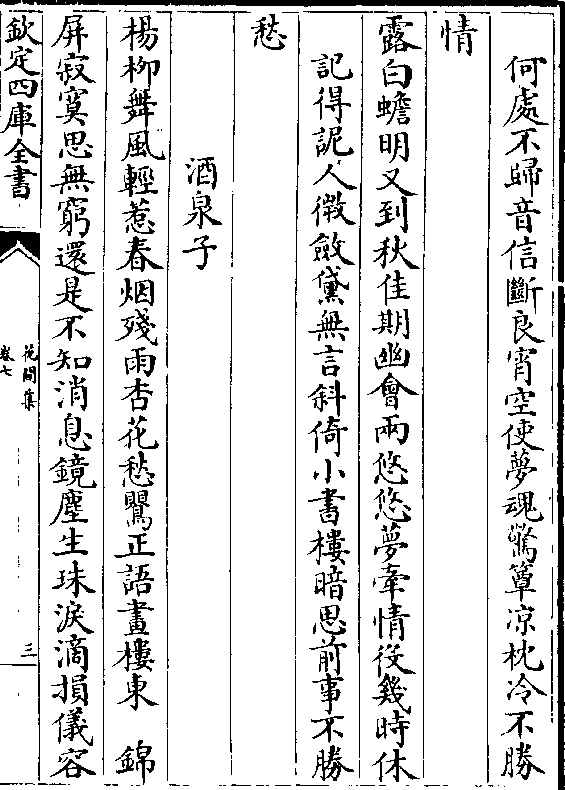 何處不歸音信斷良宵空使夢魂驚簟凉枕冷不勝
情
露白蟾明又到秋佳期幽會兩悠悠夢牽情役幾時休
記得訨人微斂黛無言斜倚小書樓暗思前事不勝
愁
酒泉子
楊柳舞風輕惹春烟殘雨杏花愁鸎正語畫樓東　錦
屏寂寞思無窮還是不知消息鏡塵生珠淚滴損儀容
欽定四庫全書
花間集
卷七
三